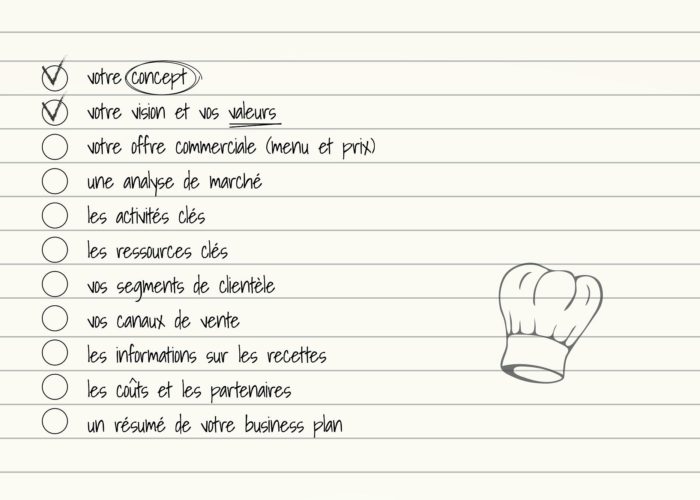 votre concept
votre vision et vos valeurs
votre offre commerciale (menu et prix)
une analyse de marché
les activités clés
les ressources clés
vos segments de clientèle
vos canaux de vente
les informations sur les recettes
les coûts et les partenaires
un résumé de votre business plan